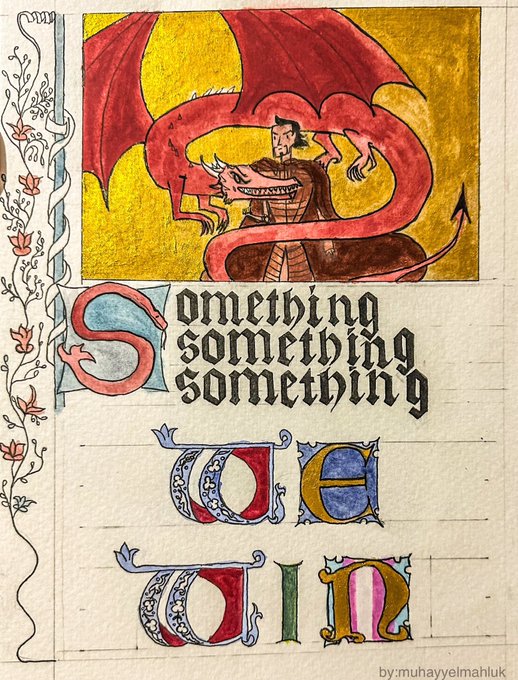 Something
something
something
WE
WIN
by:muhayyelmahluk